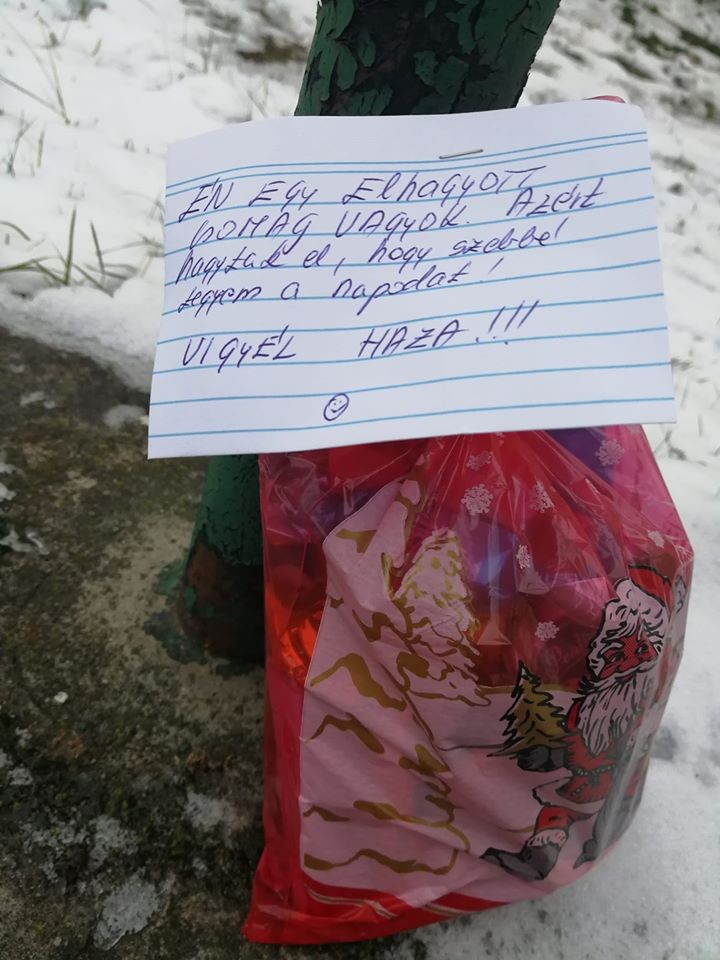 ÉN EGY ElhAGyOTT
CSOMAG VAGyOK. AZÉRT
hagytak el, hogy szebbé
tegyem a napodat!
VIGyÉL HAZA!!!